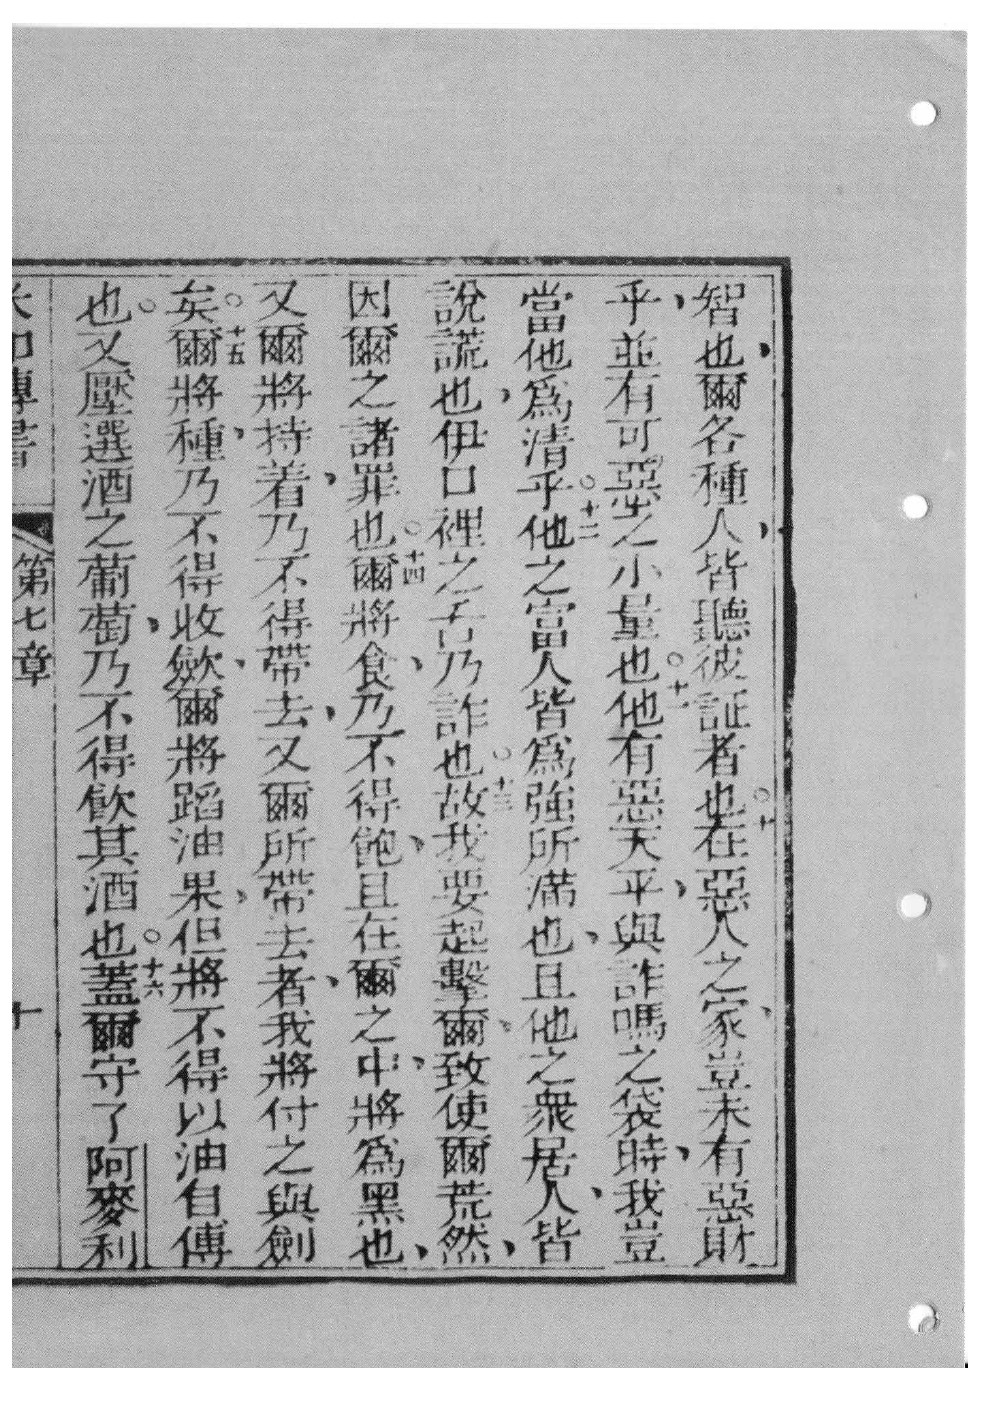 智也、爾各種人、皆聽彼証者也○十在惡人之家、豈未有惡財
乎、並有可惡之小量也○十一他有惡天平、與詐嗎之袋時、我豈
當他爲清乎○十二他之富人皆爲強所滿也、且他之衆居人、皆
說謊也、伊口裡之舌乃詐也○十三故我要起擊爾、致使爾荒然、
因爾之諸罪也○十四爾將食、乃不得飽、且在爾之中、將爲黑也、
又爾將持着、乃不得帶去、又爾所帶去者、我將付之與劍
矣○十五爾將種、乃不得收歛、爾將蹈油果、但將不得以油自傅
也○又壓選酒之葡萄、乃不得飲其酒也○十六蓋爾守了阿麥利
書 第七章 十